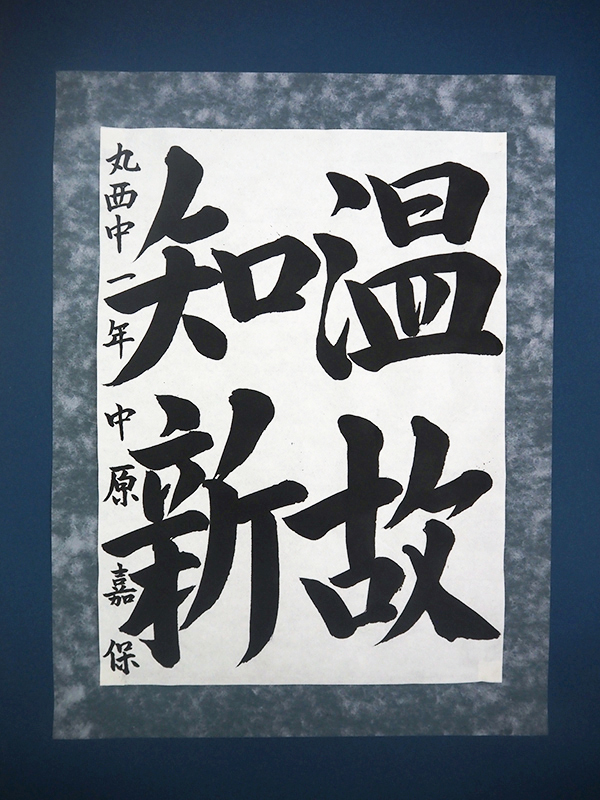 温故
知新
丸西中一年 中原嘉保